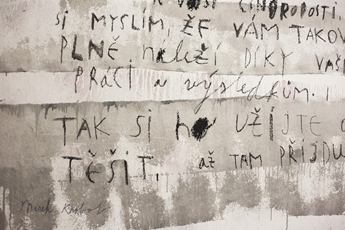 A VAŠÍ CINORODOSTI.
SI MYSLÍM, ŽE VÁM TAKOV
PLNĚ náleží DÍKY VAŠ
PRÁCI a výsledkům. I
TAK SI HO UŽIJTE
TĚŠIT. až TAM PŘIJDU
Mirek